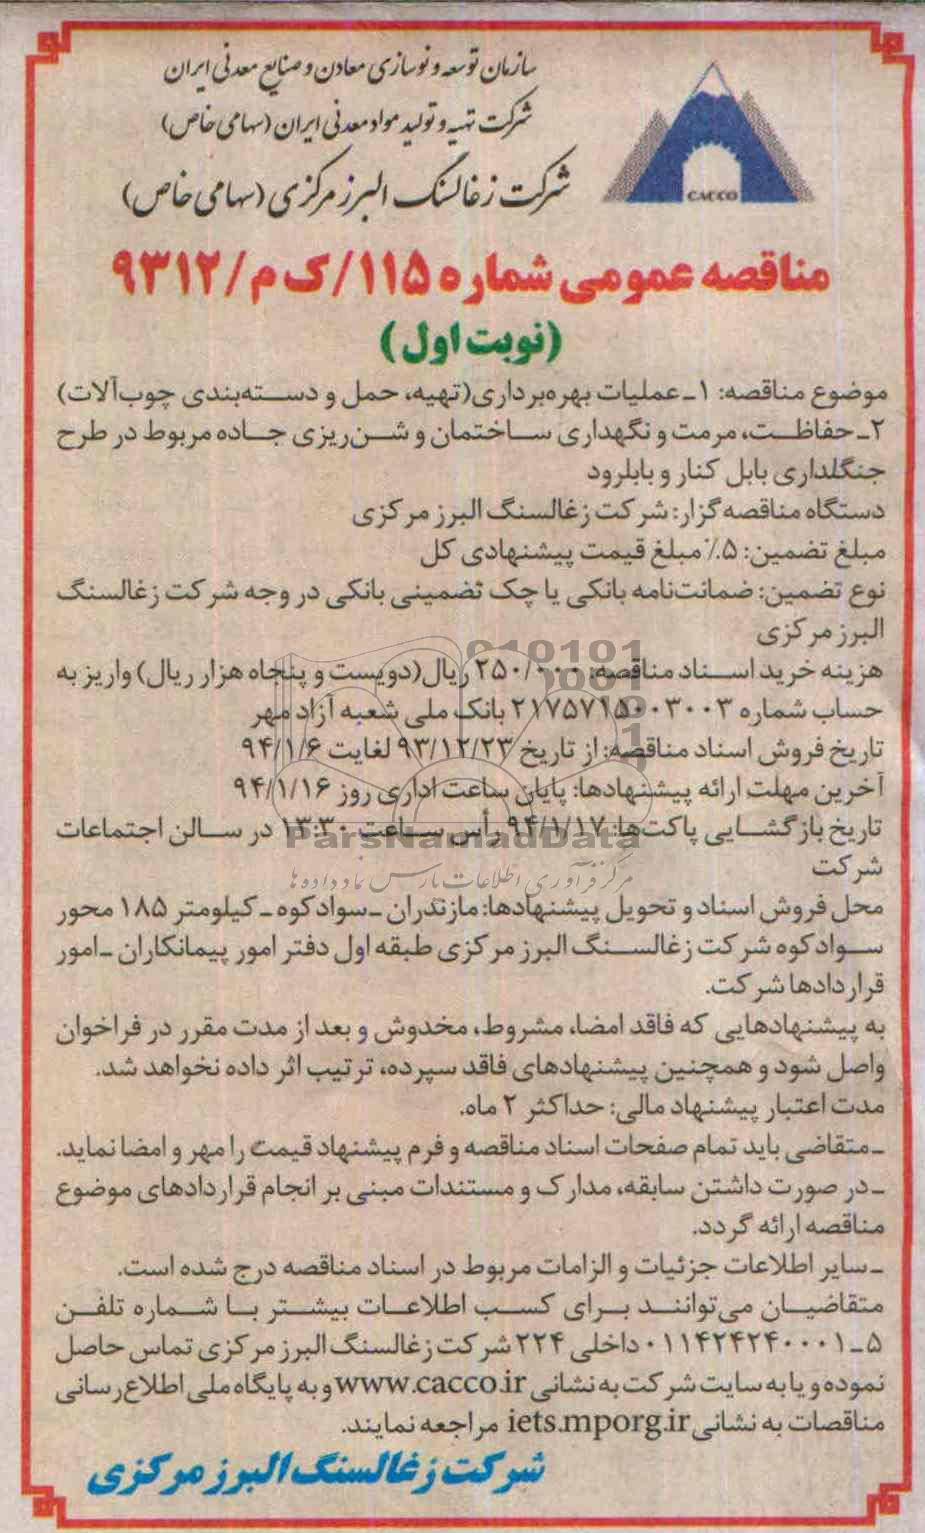 سازمان توسعه و نوسازی معادن و صنایع معدنی ایران
شرکت تهیه و تولید مواد معدنی ایران (سهامی خاص)
شرکت زغالسنگ البرز مرکزی (سهامی خاص)
CACCO
مناقصه عمومی شماره ۱۱۵/ک م/۹۳۱۲
(نوبت اول)
موضوع مناقصه: ۱ـ عملیات بهره‌برداری(تهیه، حمل و دسته‌بندی چوب‌آلات)
۲ـ حفاظت، مرمت و نگهداری ساختمان و شن‌ریزی جاده مربوط در طرح
جنگلداری بابل کنار و بابلرود
دستگاه مناقصه گزار: شرکت زغالسنگ البرز مرکزی
مبلغ تضمین: ۵٪ مبلغ قیمت پیشنهادی کل
نوع تضمین: ضمانت‌نامه بانکی یا چک تضمینی بانکی در وجه شرکت زغالسنگ
البرز مرکزی
هزینه خرید اسناد مناقصه: ۲۵۰/۰۰۰ ریال(دویست و پنجاه هزار ریال) واریز به
حساب شماره ۲۱۷۵۷۱۵۰۰۳۰۰۳ بانک ملی شعبه آزاد مهر
تاریخ فروش اسناد مناقصه: از تاریخ ۹۳/۱۲/۲۳ لغایت ۹۴/۱/۶
آخرین مهلت ارائه پیشنهادها: پایان ساعت اداری روز ۹۴/۱/۱۶
تاریخ بازگشایی پاکت‌ها: ۹۴/۱/۱۷ رأس ساعت ۱۳:۳۰ در سالن اجتماعات
شرکت
ParsNamadData
مرکز فرآوری اطلاعات پارس نماد داده ها
محل فروش اسناد و تحویل پیشنهادها: مازندران ـ سوادکوه ـ کیلومتر ۱۸۵ محور
سوادکوه شرکت زغالسنگ البرز مرکزی طبقه اول دفتر امور پیمانکاران ـ امور
قراردادها شرکت.
به پیشنهادهایی که فاقد امضا، مشروط، مخدوش و بعد از مدت مقرر در فراخوان
واصل شود و همچنین پیشنهادهای فاقد سپرده، ترتیب اثر داده نخواهد شد.
مدت اعتبار پیشنهاد مالی: حداکثر ۲ ماه.
ـ متقاضی باید تمام صفحات اسناد مناقصه و فرم پیشنهاد قیمت را مهر و امضا نماید.
ـ در صورت داشتن سابقه، مدارک و مستندات مبنی بر انجام قراردادهای موضوع
مناقصه ارائه گردد.
ـ سایر اطلاعات جزئیات و الزامات مربوط در اسناد مناقصه درج شده است.
متقاضیان می‌توانند برای کسب اطلاعات بیشتر با شماره تلفن
۵ـ۰۱۱۴۲۴۲۴۰۰۰۱ داخلی ۲۲۴ شرکت زغالسنگ البرز مرکزی تماس حاصل
نموده و یا به سایت شرکت به نشانی www.cacco.ir و به پایگاه ملی اطلاع‌رسانی
مناقصات به نشانی iets.mporg.ir مراجعه نمایند.
شرکت زغالسنگ البرز مرکزی